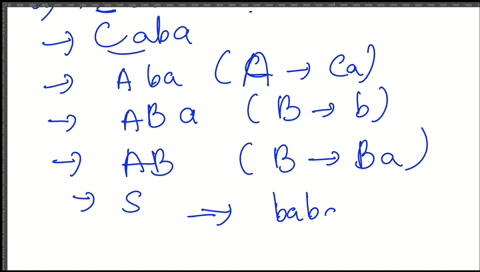 → Caba
→ Aba (A → Ca)
→ ABa (B → b)
→ AB (B → Ba)
→ S ⇒ bab